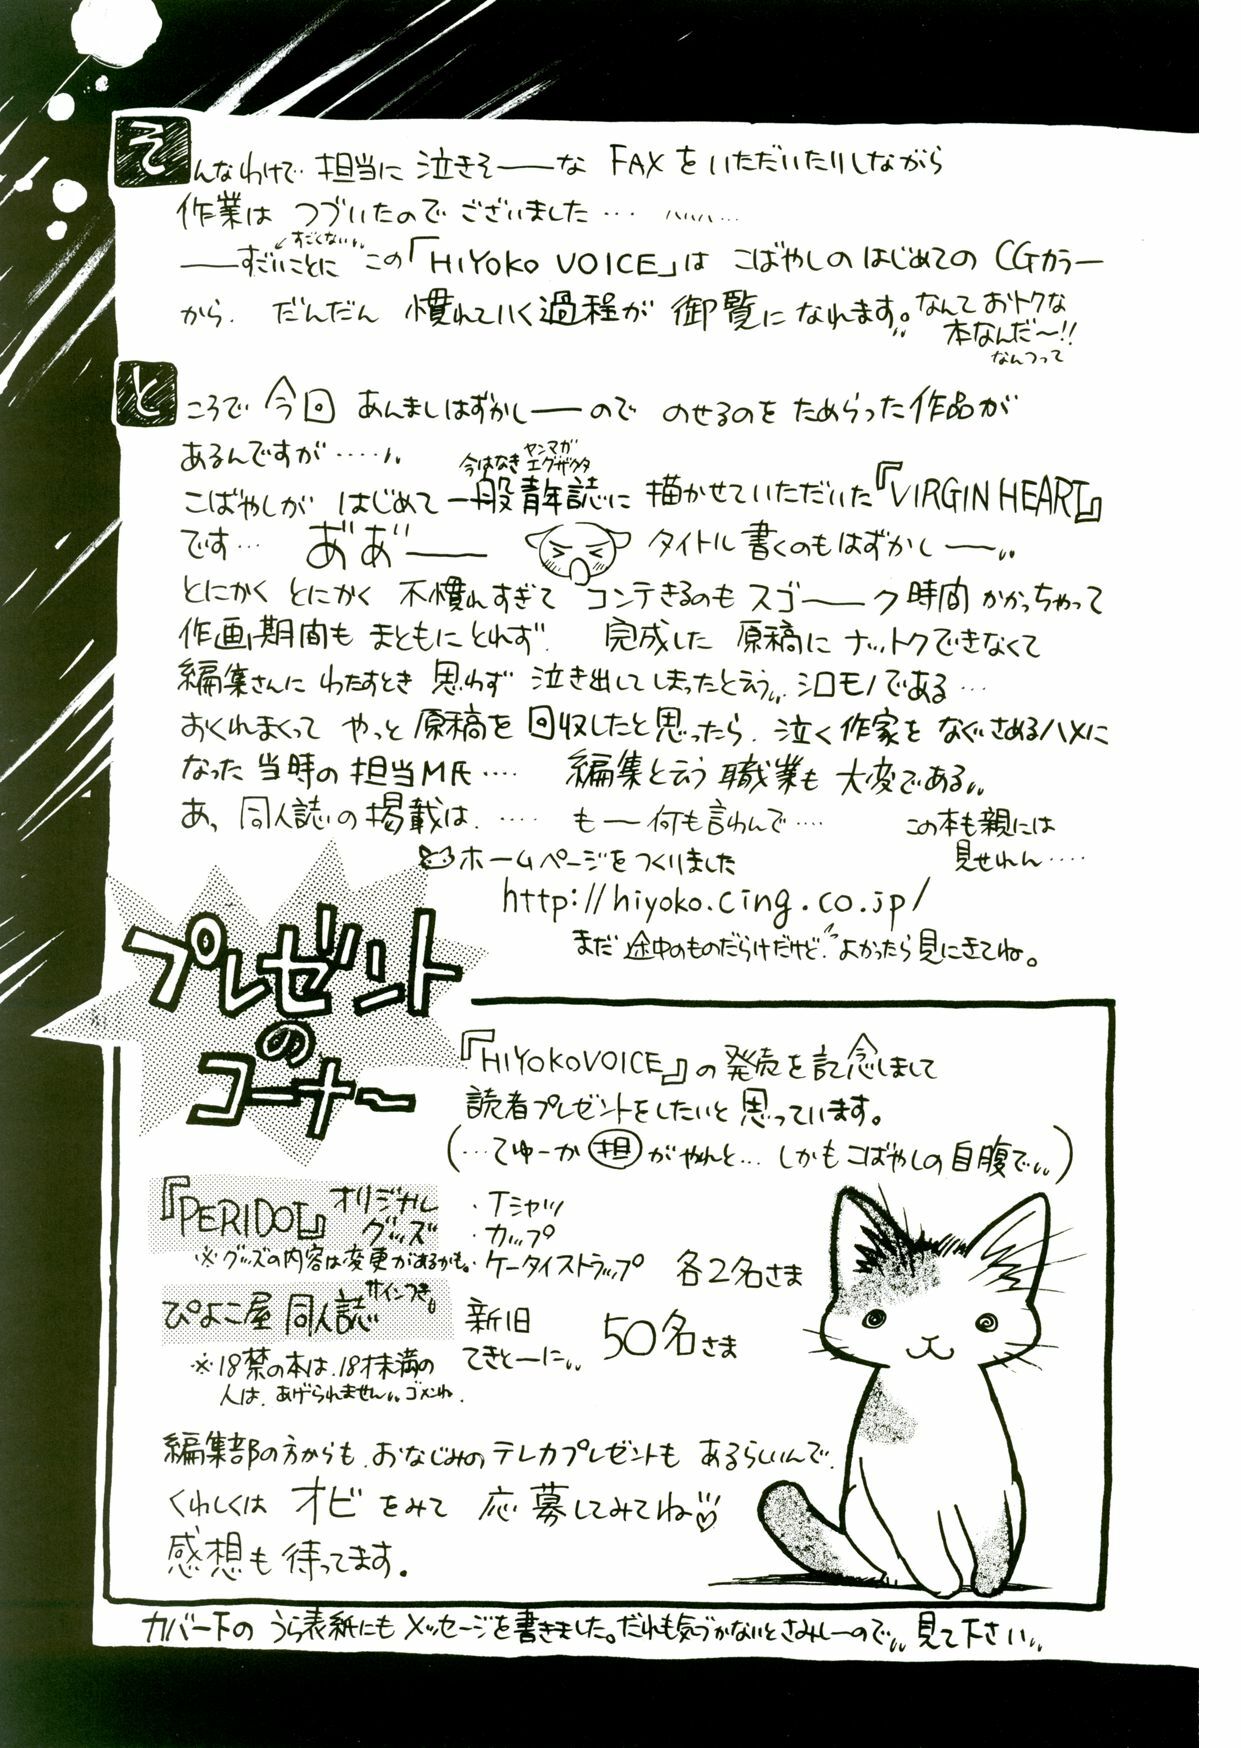 そんなわけで 担当に 泣きそ――な FAXを いただいたりしながら
作業は つづいたのでございました…
すごくない
――すごいことに この「HIYOKO VOICE」は こばやしの はじめての CGカラー
から、だんだん 慣れていく過程が 御覧になれます。なんておトクな
本なんだ～!!
なんつって
ところで 今回 あんましはずかし――ので のせるのを ためらった作品が
あるんですが……
今はなき ヤンマガ
エグザクタ
こばやしが はじめて 一般青年誌に 描かせていただいた『VIRGIN HEART』
です… あ゛あ゛―― タイトル書くのもはずかし――
とにかく とにかく 不慣れすぎて コンテきるのも スゴ――ク 時間 かかっちゃって
作画期間も まともに とれず、完成した 原稿に ナットクできなくて
編集さんに わたすとき 思わず 泣き出してしまったと云う、シロモノである…
おくれまくって やっと 原稿を 回収したと思ったら、泣く作家を なぐさめるハメに
なった 当時の 担当M氏…. 編集と云う 職業も 大変である
あ、同人誌の掲載は、….. も―何も言わんで….
この本も親には
見せれん….
ホームページをつくりました
http://hiyoko.cing.co.jp/
まだ 途中のものだらけだけど よかったら 見にきてね。
プレゼント
の
コーナ～
『HIYOKO VOICE』の 発売を 記念しまして
読者プレゼントをしたいと 思っています。
(…てゆーか 担 がやれと… しかもこばやしの自腹で)
『PERIDOT』オリジナル
グッズ
※グッズの内容は変更があるかも。
・Tシャツ
・カップ
・ケータイストラップ 各2名さま
ぴよこ屋 同人誌 サインつき。
新旧
てきとーに 50名さま
※18禁の本は、18才未満の
人は、あげられません ゴメンね.
編集部の方からも、おなじみの テレカプレゼントも あるらしいんで、
くわしくは オビ をみて 応募してみてね♡
感想も 待ってます。
カバー下の うら表紙にも メッセージを書きました。だれも気づかないとさみしーので 見て下さい